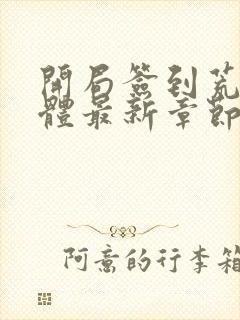 開局簽到荒
體最新章節
阿意的行李箱